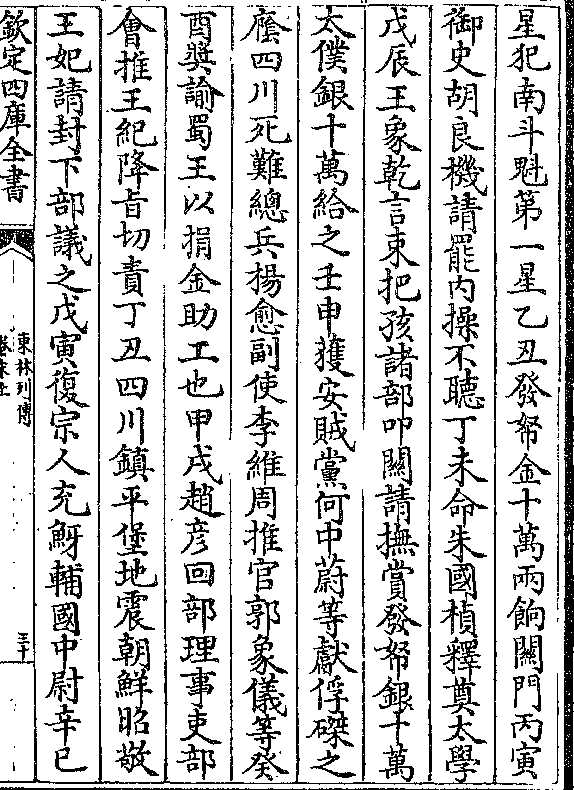 星犯南斗魁第一星乙丑發帑金十萬兩餉關門丙寅
御史胡良機請罷內操不聽丁未命朱國楨釋奠太學
戊辰王象乾言朿把孩諸部叩關請撫賞發帑銀十萬
太僕銀十萬給之壬申獲安賊黨何中蔚等獻俘磔之
廕四川死難總兵楊愈副使李維周推官郭象儀等癸
酉奬諭蜀王以捐金助工也甲戌趙彥回部理事吏部
會推王紀降旨切責丁丑四川鎮平堡地震朝鮮昭敬
王妃請封下部議之戊寅復宗人充䰲輔國中尉辛巳
欽定四庫全書
東林列傳
卷末上
三十